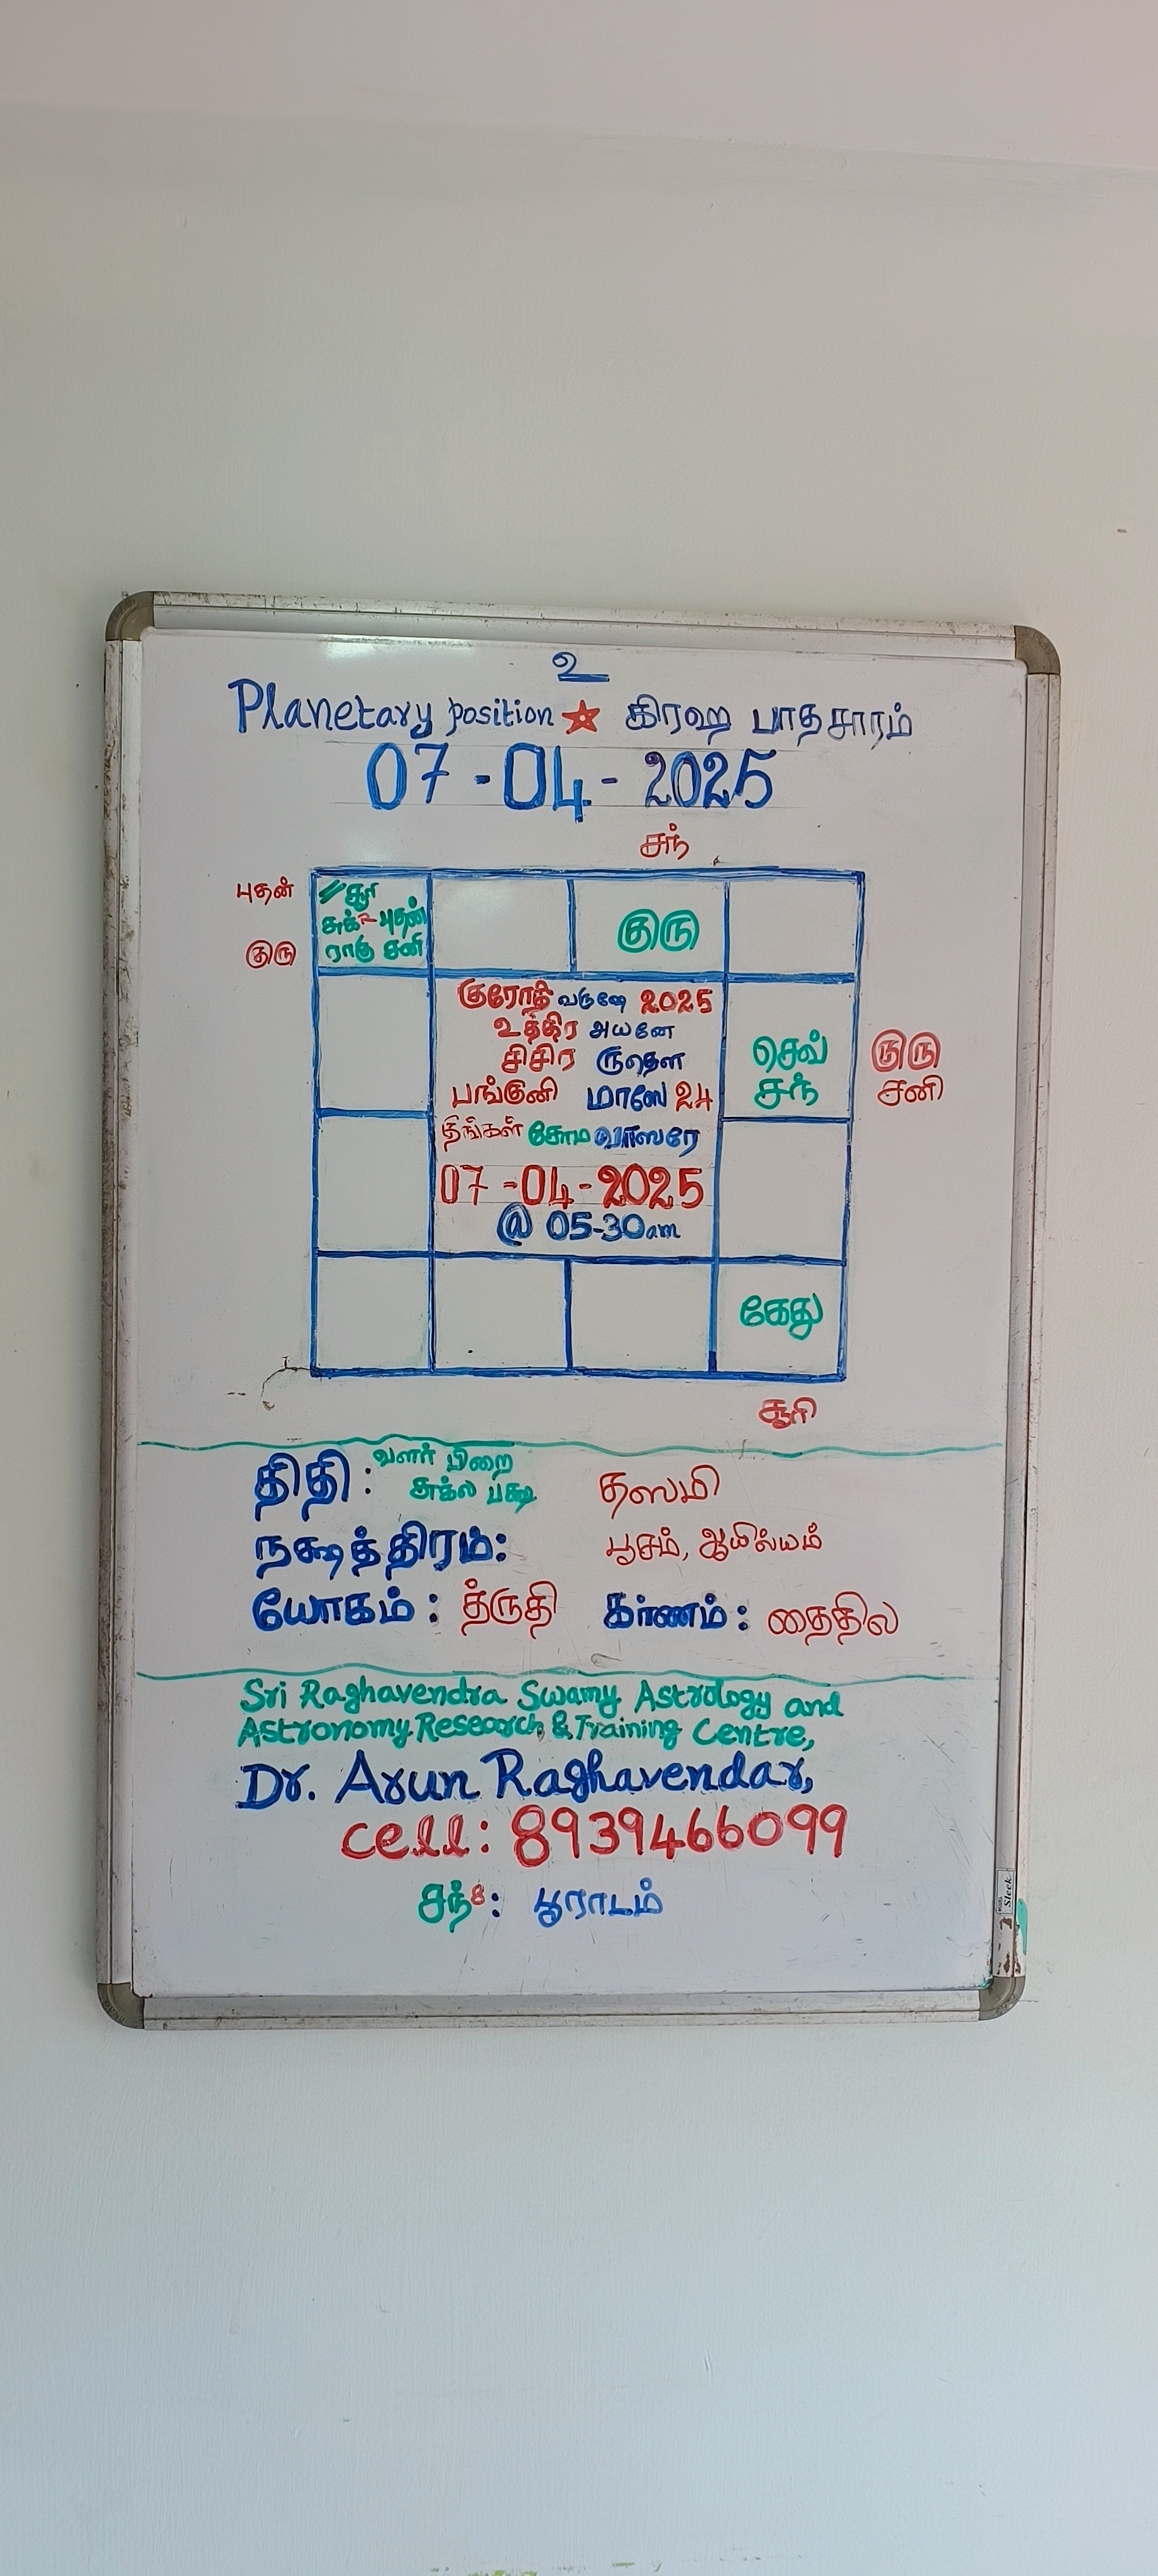 உ
Planetary position ☆ கிரஹ பாதசாரம்
07-04-2025
சந்
புதன்
குரு
// சூரி
சுக்~ புதன்
ராகு சனி
குரு
குரோதி வருஷே 2025
உத்திர அயனே
சிசிர ருதௌ
பங்குனி மாஸே 24
திங்கள் சோம வாஸரே
07-04-2025
@ 05-30am
செவ்
சந்
குரு
சனி
கேது
சூரி
திதி : வளர் பிறை
சுக்ல பக்ஷ தஸமி
நக்ஷத்திரம்: பூசம், ஆயில்யம்
யோகம் : த்ருதி கர்ணம் : தைதில
Sri Raghavendra Swamy Astrology and
Astronomy Research & Training Centre,
Dr. Arun Raghavendar,
cell: 8939466099
சந்8: பூராடம்
Sleek